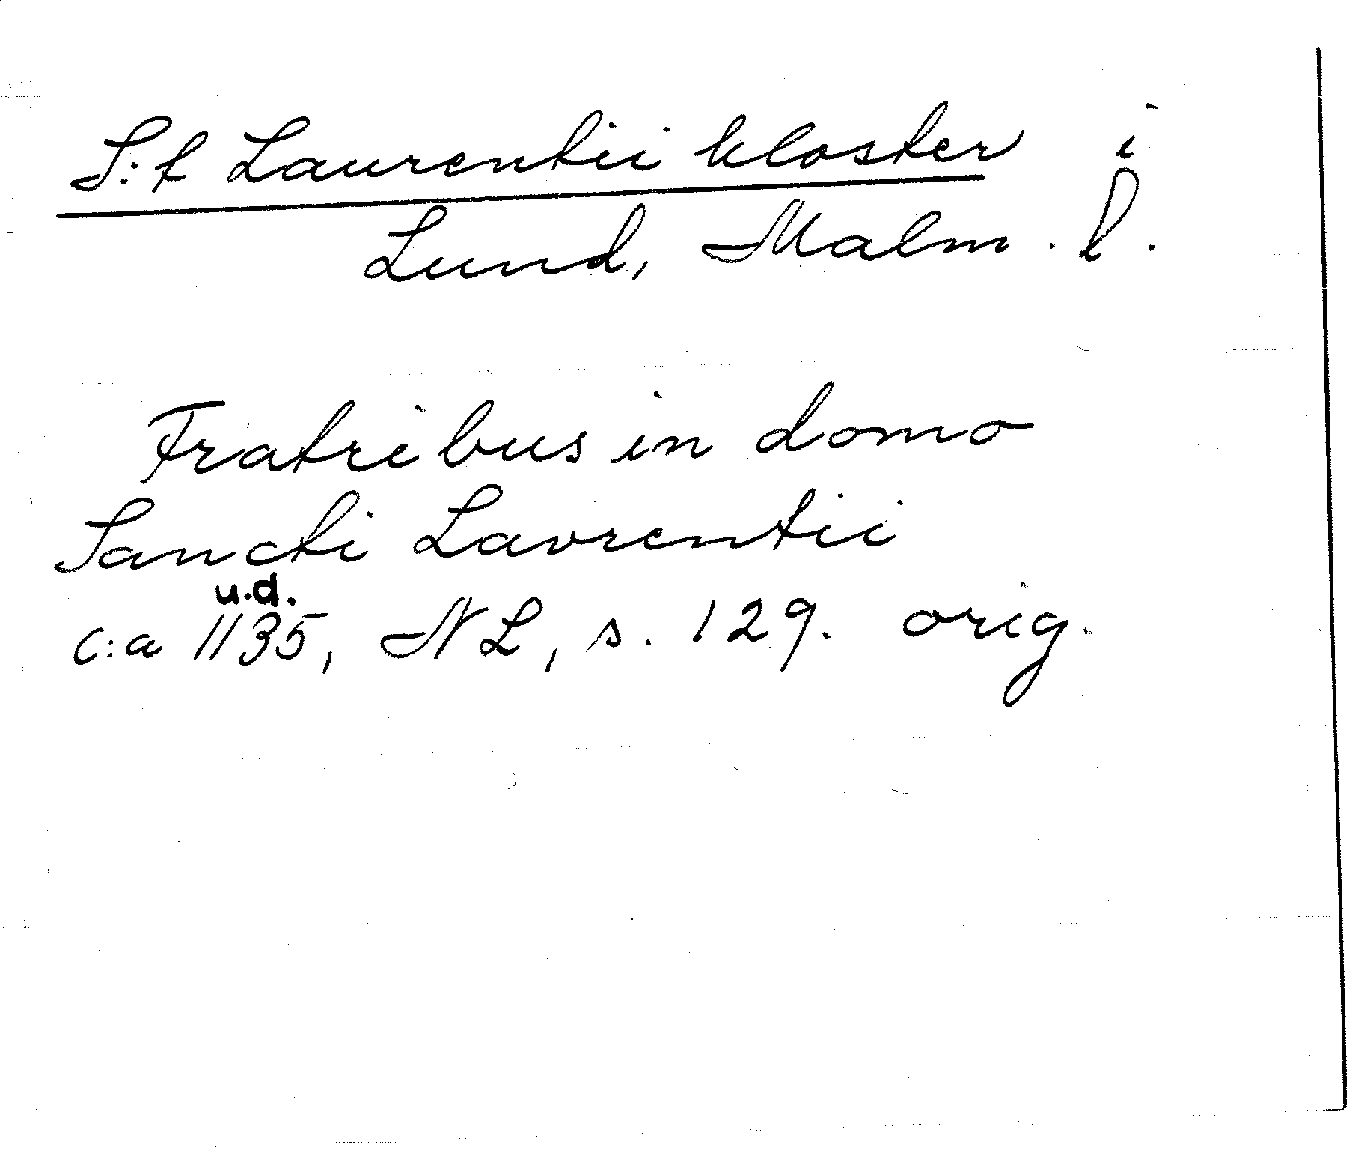 S:t Laurentii kloster i
Lund, Malm. l.
Fratribus in domo
Sancti Lavrentii
u.d.
c:a 1135, NL, s. 129. orig.